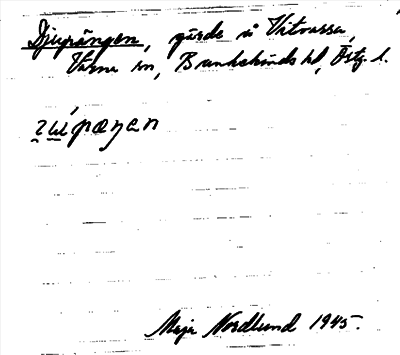 Djupängen, gärde å Vitvassa,
Vårna sn, Bankekinds hd, Östg. l.
Maja Nordlund 1945.